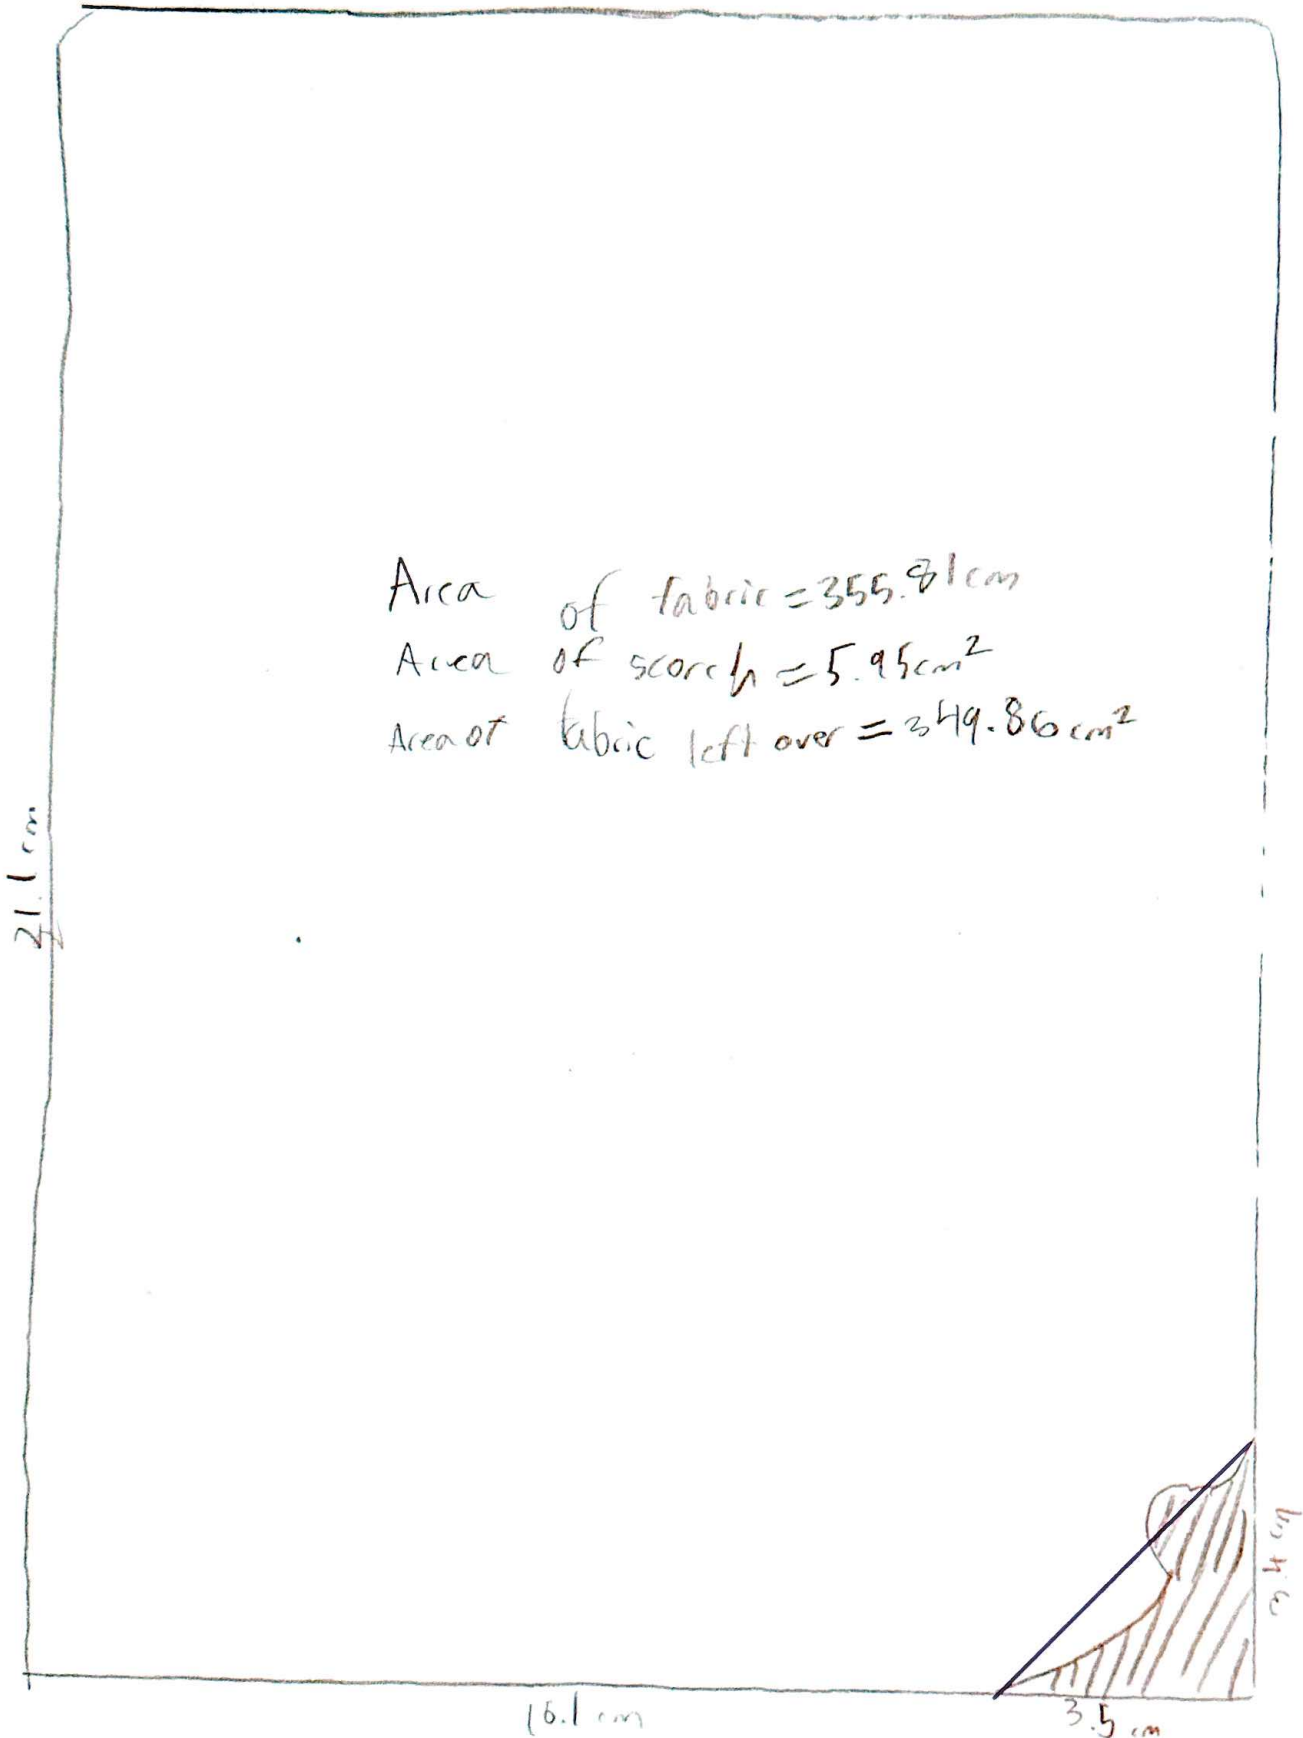 Area of fabric = 355.81cm
Area of scorch = 5.95cm²
Area of fabric left over = 349.86cm²
21.1 cm
3.4 cm
16.1 cm
3.5 cm